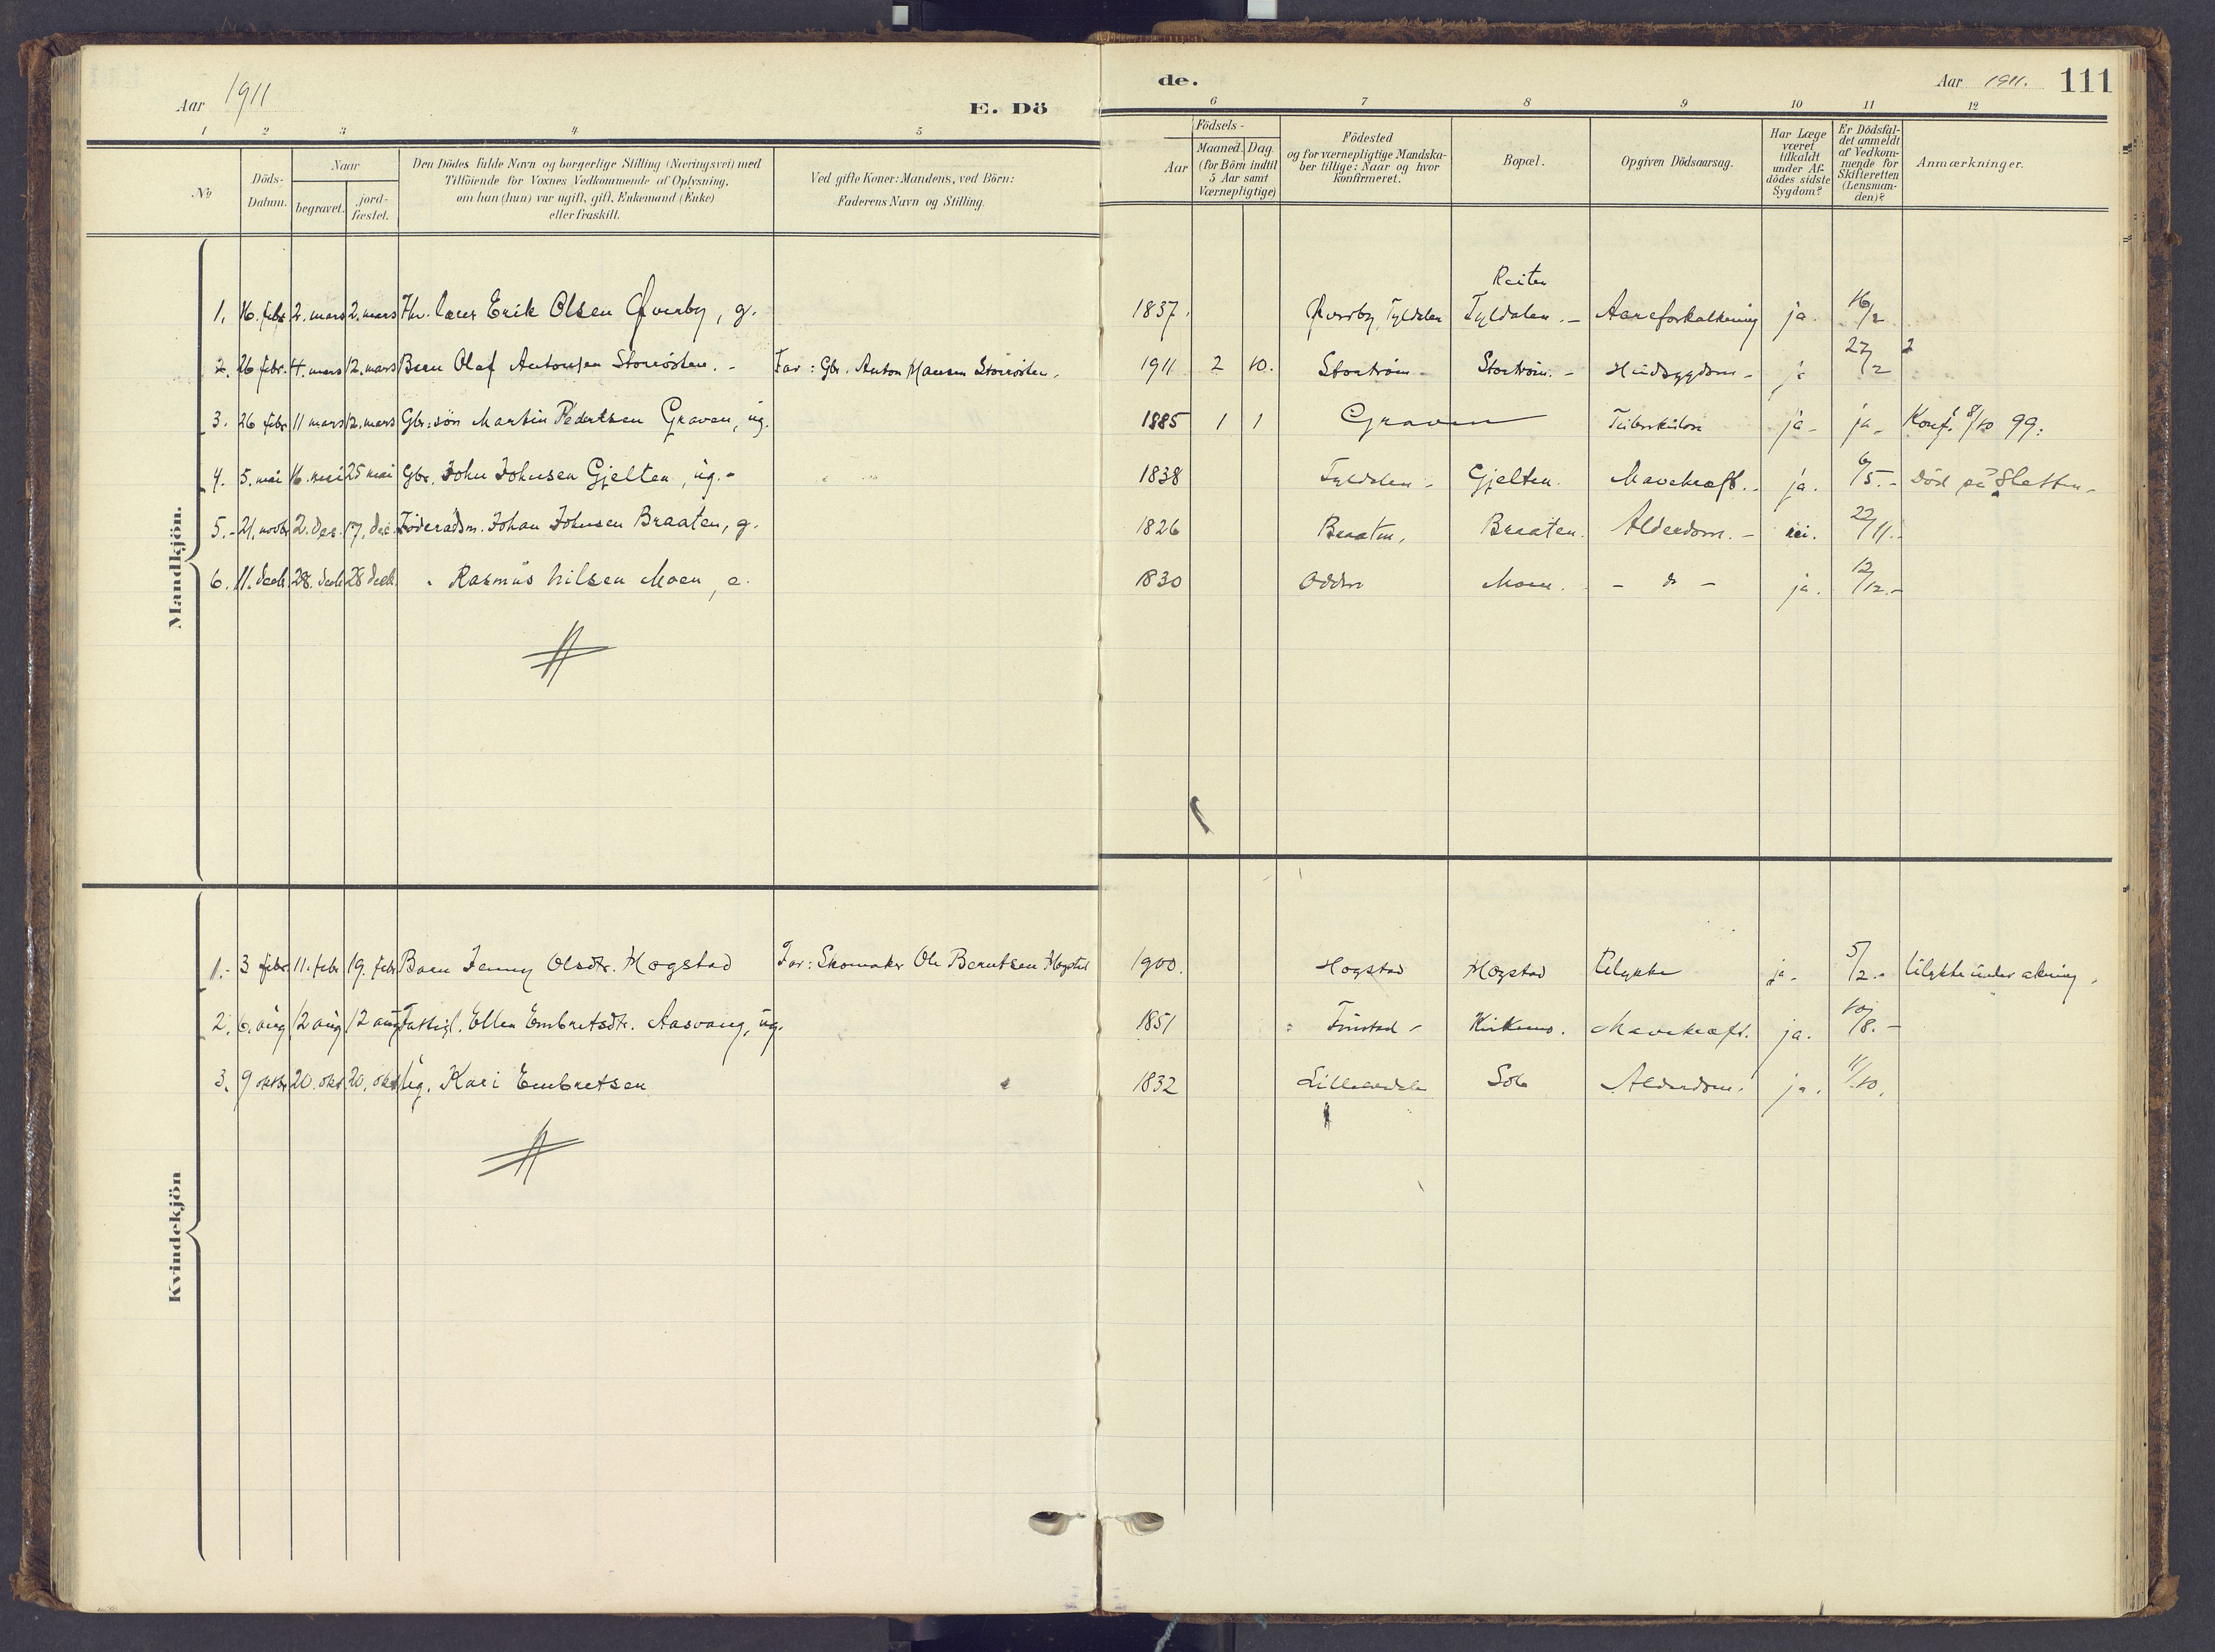 Aar 1911
E. Dö
de.
Aar 1911. 111
1 2 3 4 5 6 7 8 9 10 11 12
№
Döds-Datum.
Naar
begravet.
jord-fæstet.
Den Dödes fulde Navn og borgerlige Stilling (Næringsvei) med
Tilföiende for Voxnes Vedkommende af Oplysning,
om han (hun) var ugift, gift, Enkemand (Enke)
eller fraskilt.
Ved gifte Koner: Mandens, ved Börn:
Faderens Navn og Stilling.
Födsels-
Aar
Maaned. Dag.
(for Börn indtil
5 Aar samt
Værnepligtige)
Födested
og for værnepligtige Mandska-
ber tillige: Naar og hvor
konfirmeret.
Bopæl.
Opgiven Dödsaarsag.
Har Læge
været
tilkaldt
under Af-
dödes sidste
Sygdom?
Er Dödsfal-
det anmeldt
af Vedkom-
mende for
Skifteretten
(Lensman-
den)?
Anmærkninger.
Mandkjön.
Reiten
1. 16. febr. 2. mars 2. mars Fhv. lærer Erik Olsen Øverby, g. 1837. Øverby, Tyldalen Tyldalen.- Aareforkalkning ja. 16/2
2. 26 febr. 4. mars 12. mars Barn Olaf Antonsen Storrøsten.- Far: Gbr. Anton Hansen Storrøsten. 1911 2 10. ja 27/2
3. 26 febr. 11 mars 12. mars Gbr:søn Martin Pedersen Graven, ug. 1885 1 1 Graven Tuberkulose ja- ja- Konf. 8/10 99.
4. 5. mai 16. mai 25 mai Gbr. John Johnsen Gjelten, ug.- 1838 Tyldalen- Gjelten. Mavekræft.- ja. 6/5.- Død på Sletten-
5.- 21. novbr 2. des. 17. des. Føderaadsm. Johan Johnsen Braaten, g. 1826 Braaten, Braaten. Alderdom.- nei. 22/11.-
6. 11. decb. 28. decb 28 decb. " Rasmus Nilsen Moen, e. 1830 Odden Moen. - do - ja. 12/12.-
Kvindekjön
1.- 3 febr. 11. febr 19. febr Barn Jenny Olsdtr. Hogstad Far: Skomaker Ole Berntsen Hogstad 1900. Hogstad Hogstad Ulykke ja- 5/2.- Ulykke under akning.
2. 6. aug. 12 aug 12 aug Fattigl. Ellen Embretsdtr. Aasvang, ug. 1851 Finstad- Kirkemo. Mavekræft. ja. 10/8.-
3. 9 oktbr 20. okt. 20. okt. Ug. Kari Embretsen 1832 Lilleelvdalen Alderdom. ja. 11/10.